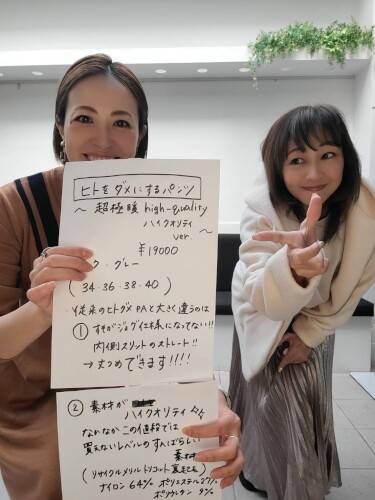 ヒトをダメにするパンツ
〜 超極暖 high-quality
ハイクオリティ
ver. 〜
¥19000
ク・グレー
(34・36・38・40)
従来のヒトダメPAと大きく違うのは
① すそがジョグ仕様になってない!!
内側スリットのストレート!!
→ 丈つめできます!!!!
② 素材が ハイクオリティ
なかなかこの値段では
買えないレベルのすんばらしい
素材
(リサイクルメリルトリコット裏起毛)
ナイロン64% ポリエステル27%
ポリウレタン 9%